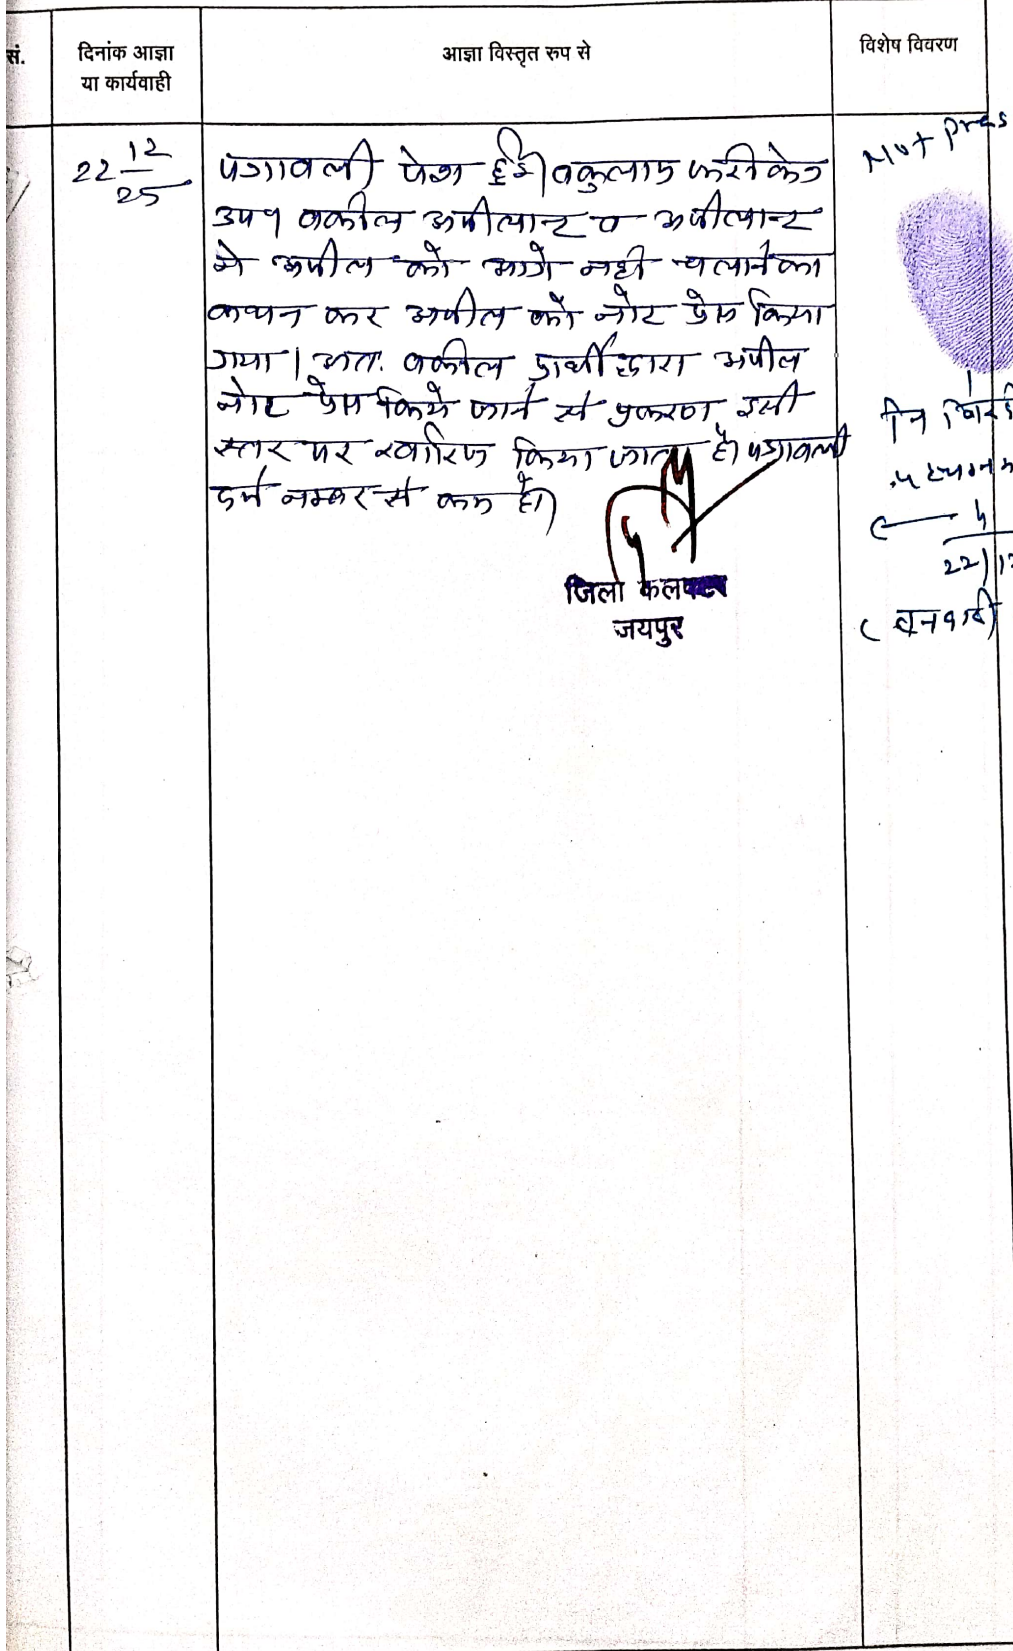 सं.
दिनांक आज्ञा
या कार्यवाही
आज्ञा विस्तृत रूप से
विशेष विवरण
22 12/25
पत्रावली पेश हुई। वकुलाय फरीकेन
उप। वकील अपीलान्ट व अपीलान्ट
ने अपील को आगे नही चलाने का
कथन कर अपील को नोट प्रेस किया
गया। अतः वकील प्रार्थी द्वारा अपील
नोट प्रेस किये जाने से प्रकरण इसी
स्तर पर खारिज किया जाता है। पत्रावली
दर्ज नम्बर से कम हो।
जिला कलक्टर
जयपुर
Not Pres
नि
22/12